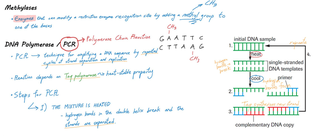 Methylases
- Enzymes that can modify a restriction enzyme recognition site by adding a methyl group to
one of the bases
CH₃
DNA Polymerase / PCR → Polymerase Chain Reaction
G A A T T C
C T T A A G
CH₃
- PCR → technique for amplifying a DNA sequence by repeated
cycles of strand separation and replication
- Reaction depends on Taq polymerase → heat-stable property
- Steps for PCR
↳ 1) THE MIXTURE IS HEATED
- hydrogen bonds in the double helix break and the
strands are separated.
initial DNA sample
1.
heat
single-stranded
DNA templates
2.
cool
primer
3.
complementary DNA copy
4.